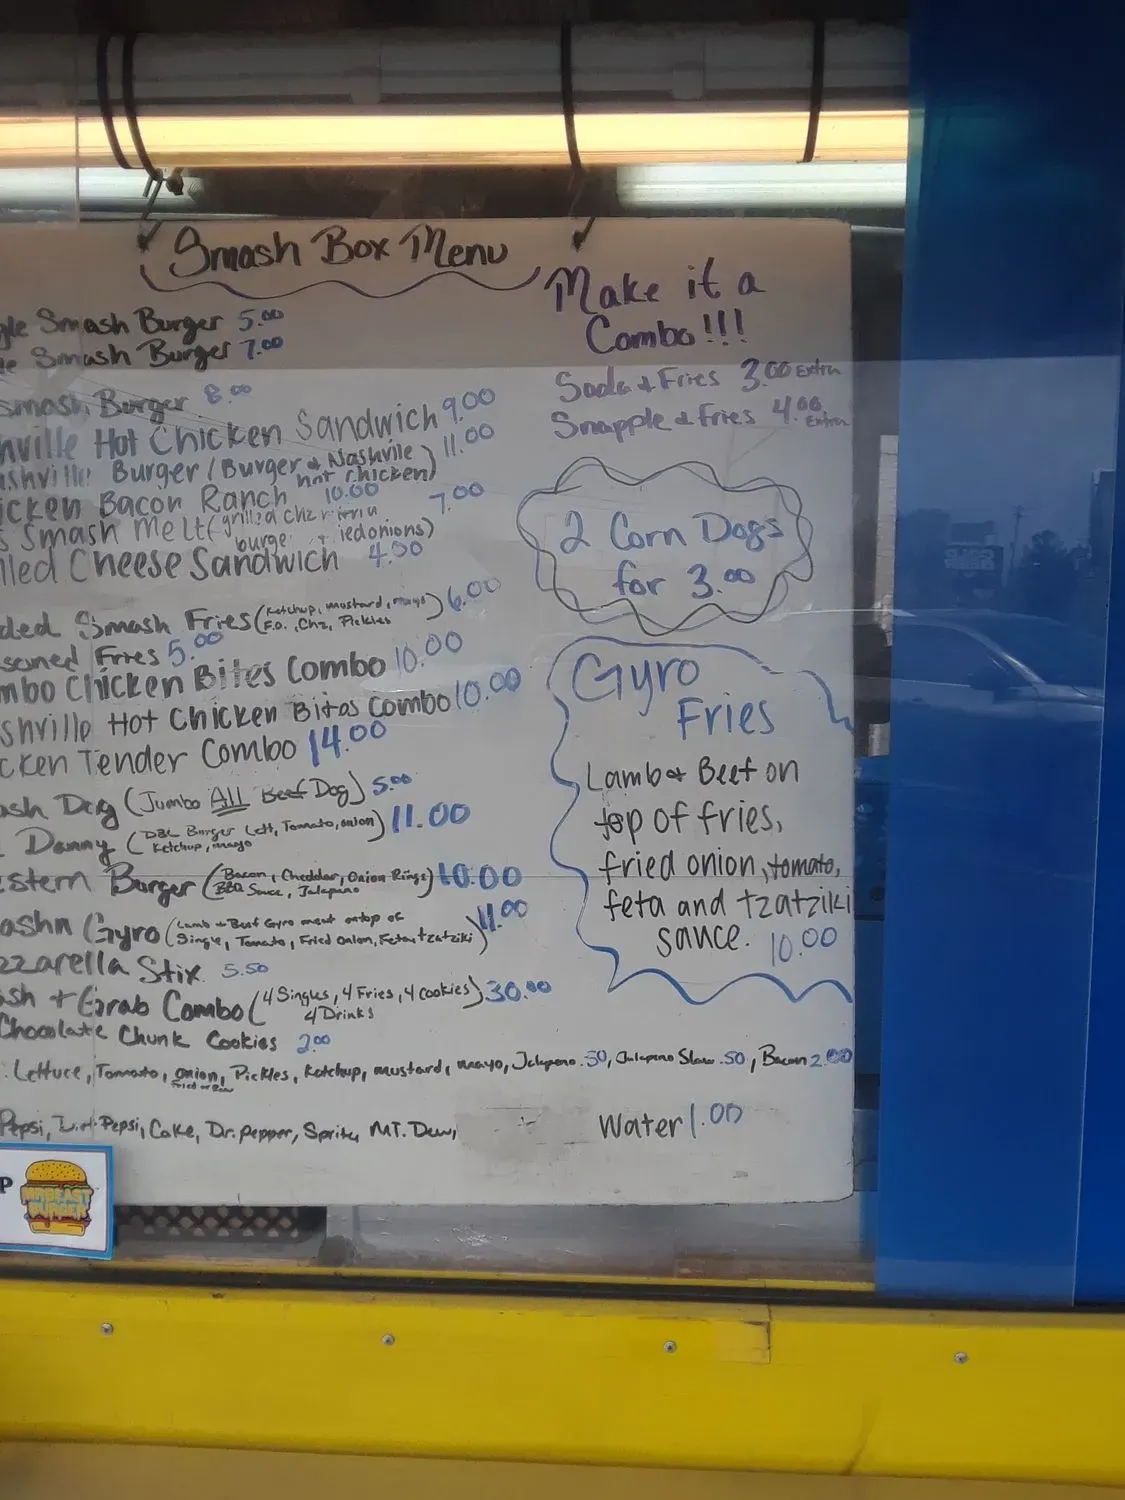 Smash Box Menu
gle Smash Burger 5.00
le Smash Burger 7.00
Smash Burger 8.00
hville Hot Chicken Sandwich 9.00
ashville Burger (Burger & Nashville hot chicken) 11.00
icken Bacon Ranch 10.00
s Smash Melt (grilled chz burger 7.00
lled Cheese Sandwich 4.00
ded Smash Fries (Ketchup, mustard, mayo, 6.00
F.O., Chz, Pickles)
soned Fries 5.00
mbo Chicken Bites Combo 10.00
shville Hot Chicken Bites Combo 10.00
cken Tender Combo 14.00
ash Dog (Jumbo ALL Beef Dog) 5.00
Danny (DBL Burger Lett, Tomato, onion) 11.00
Ketchup, mayo
stern Burger (Bacon, Cheddar, Onion Rings) 10.00
BBQ Sauce, Jalapeno
ashn Gyro (Lamb & Beef Gyro meat ontop of 11.00
Single, Tomato, Fried onion, Feta & tzatziki)
zzarella Stix 5.50
ash + Grab Combo (4 Singles, 4 Fries, 4 Cookies) 30.00
4 Drinks
Chocolate Chunk Cookies 2.00
Lettuce, Tomato, onion, Pickles, Ketchup, mustard, mayo, Jalapeno .50, Jalapeno Slaw .50, Bacon 2.00
Fried or Raw
Pepsi, Diet Pepsi, Coke, Dr. pepper, Sprite, MT. Dew,
Water 1.00
Make it a
Combo!!!
Soda & Fries 3.00 Extra
Snapple & Fries 4.00 Extra
2 Corn Dogs
for 3.00
Gyro
Fries
Lamb & Beef on
top of fries,
fried onion, tomato,
feta and tzatziki
sauce. 10.00
P
MRBEAST
BURGER